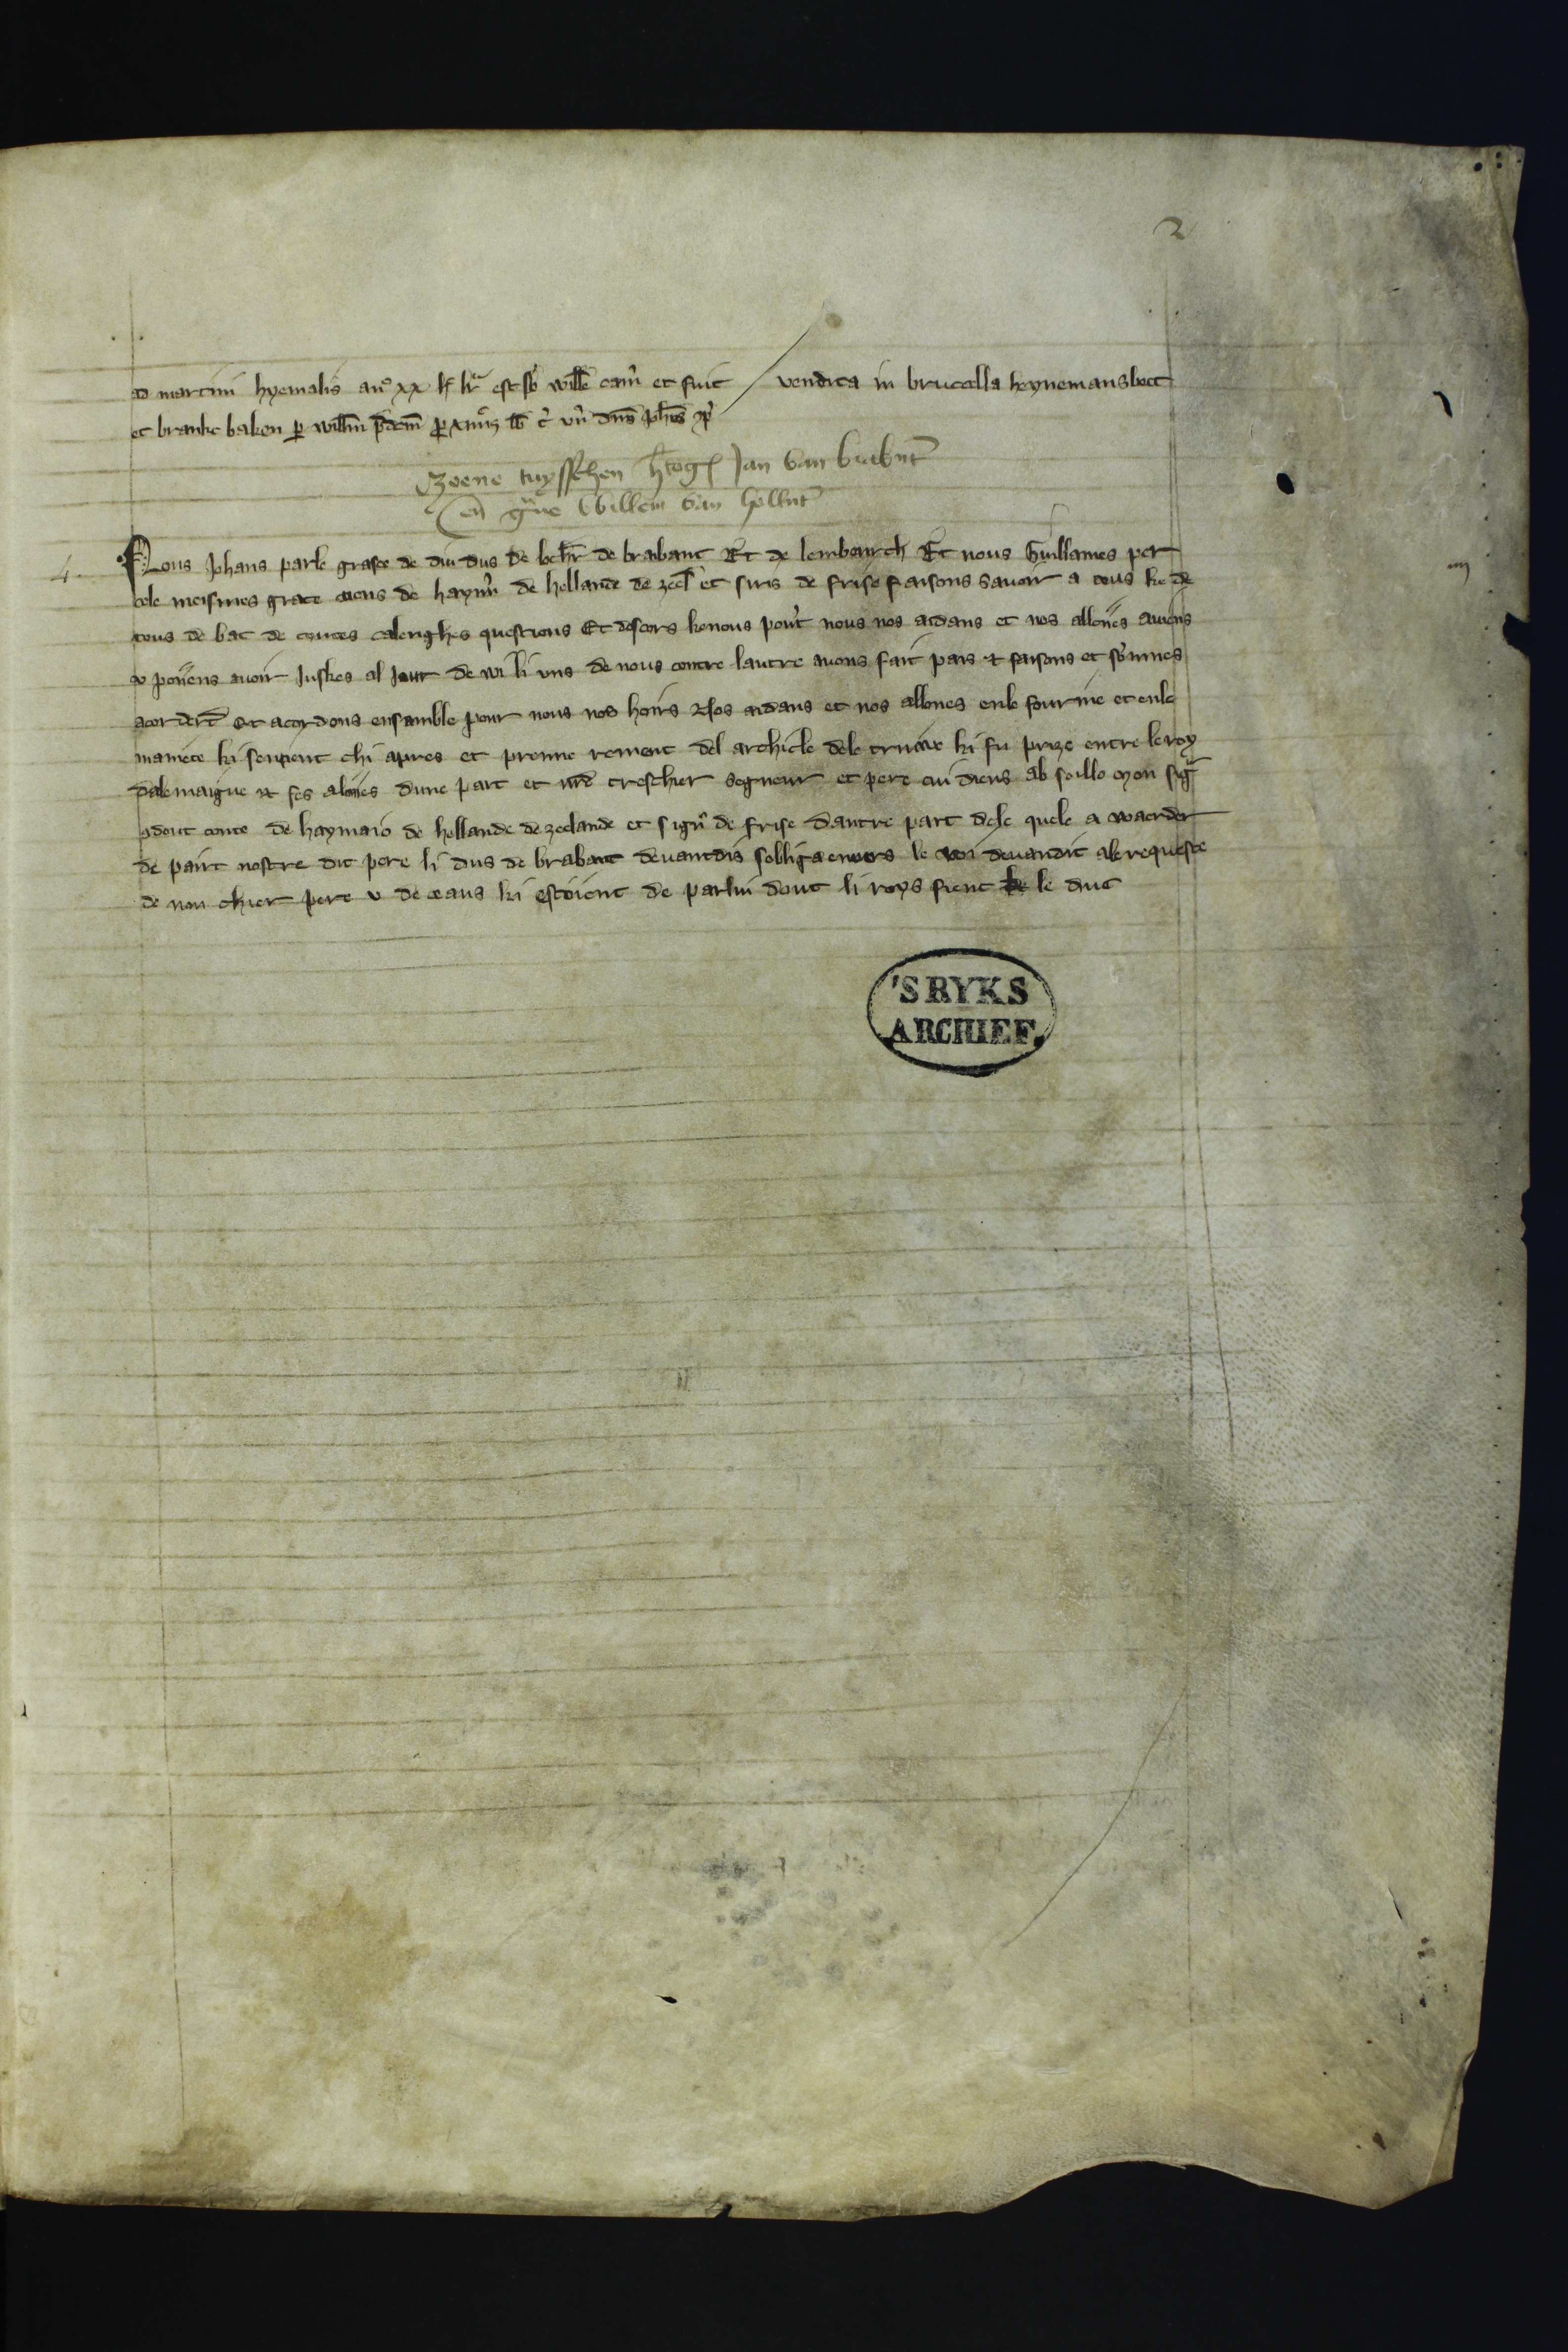 2
ad martini hyemalis anᵒ xx hᷓ lrᷓ est sᷓ willᷓ camᷓ et fuit vendita in brucella heynemansbert
et branke baken ꝑ willm̄ p̄dcm̄ ꝑ xiiijᷓ lb̄ tᷓ vn̄ dn̄s ioh̄es
Zoene tuysschen h̄tog Jan van brabnt̄
en̄ g̈ue Willem van hollnt̄
4.
Nous Jehans parle grasce de diu dus de loth̄r de brabant Et de lembourch Et nous Guillames per
cele meismes grace cuens de hayn̄ de hollande de zeel̄ et sires de frise faisons savoir a tous ke de
tous de bat de toutes calenghes questions Et descors ke nous pour nous nos aidans et nos alloiiés aviens
v poviens avoir Juskes al Jour de wi li uns de nous contre lautre avons fait pais et faisons et sommes
acordeit Et acordons ensamble pour nous nos hoirs Nos aidans et nos alloiiés enle fourme et enle
maniere ki sensient chi apres et premierement del archicle dele truwe ki fu prize entre le roy
dalemaigne et ses aloiiés dune part et nr̄e treschier segneur et pere cui diens absoille mon sigr̄
adont conte de haynaio de hollande de zeelande et sign̄ de frise dautre part dele quele a waerder
de pairt nostre dit pere li dus de brabant devantdis sobliga envers le roi devandit ale requeste
de nou chier pere v de ceaus ki estoient de par lui dont li roys sient le duc
iiij
'S RYKS
ARCHIEF.